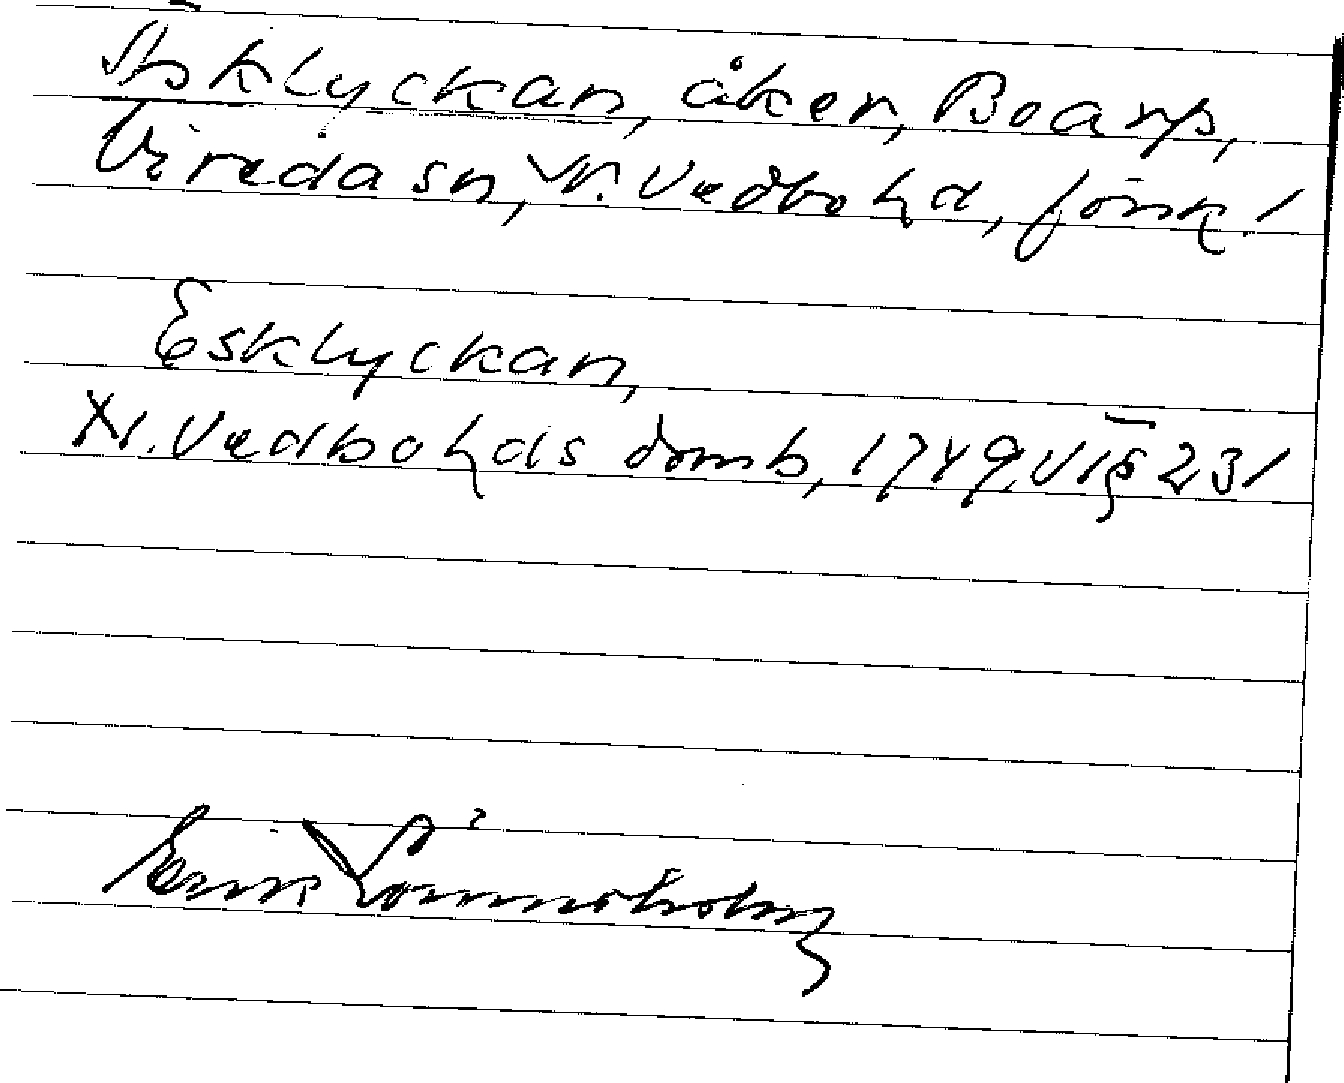 Äsklyckan, åker, Boarp,
Vireda sn, N. Vedbo hd, Jönk. l
Esklyckan,
N. Vedbo hds domb, 1749, VI § 231
Erik Lönnsholm